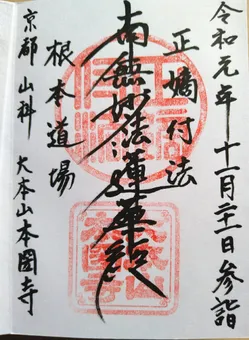 令和元年十一月二十一日参詣
正嫡付法
南無妙法蓮華経
根本道場
京都山科 大本山本圀寺